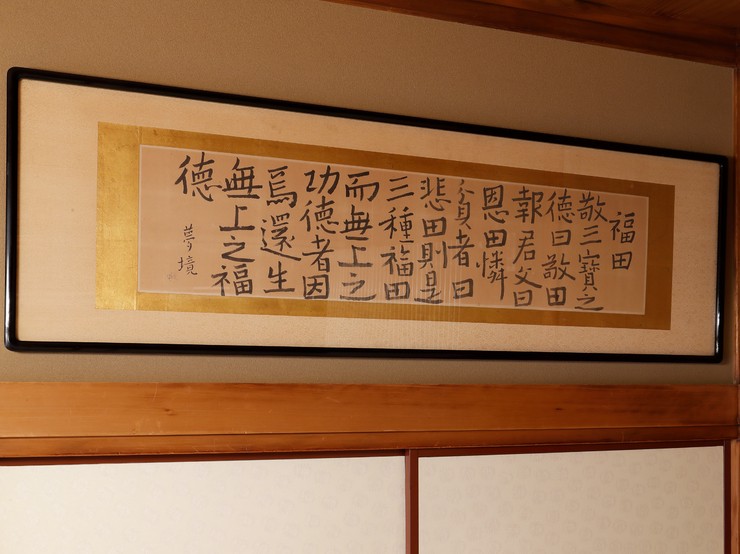 福田
敬三寳之
德曰敬田
報君父曰
恩田憐
貧者曰
悲田則是
三種福田
而無上之
功德者因
焉還生
無上之福
德
夢境